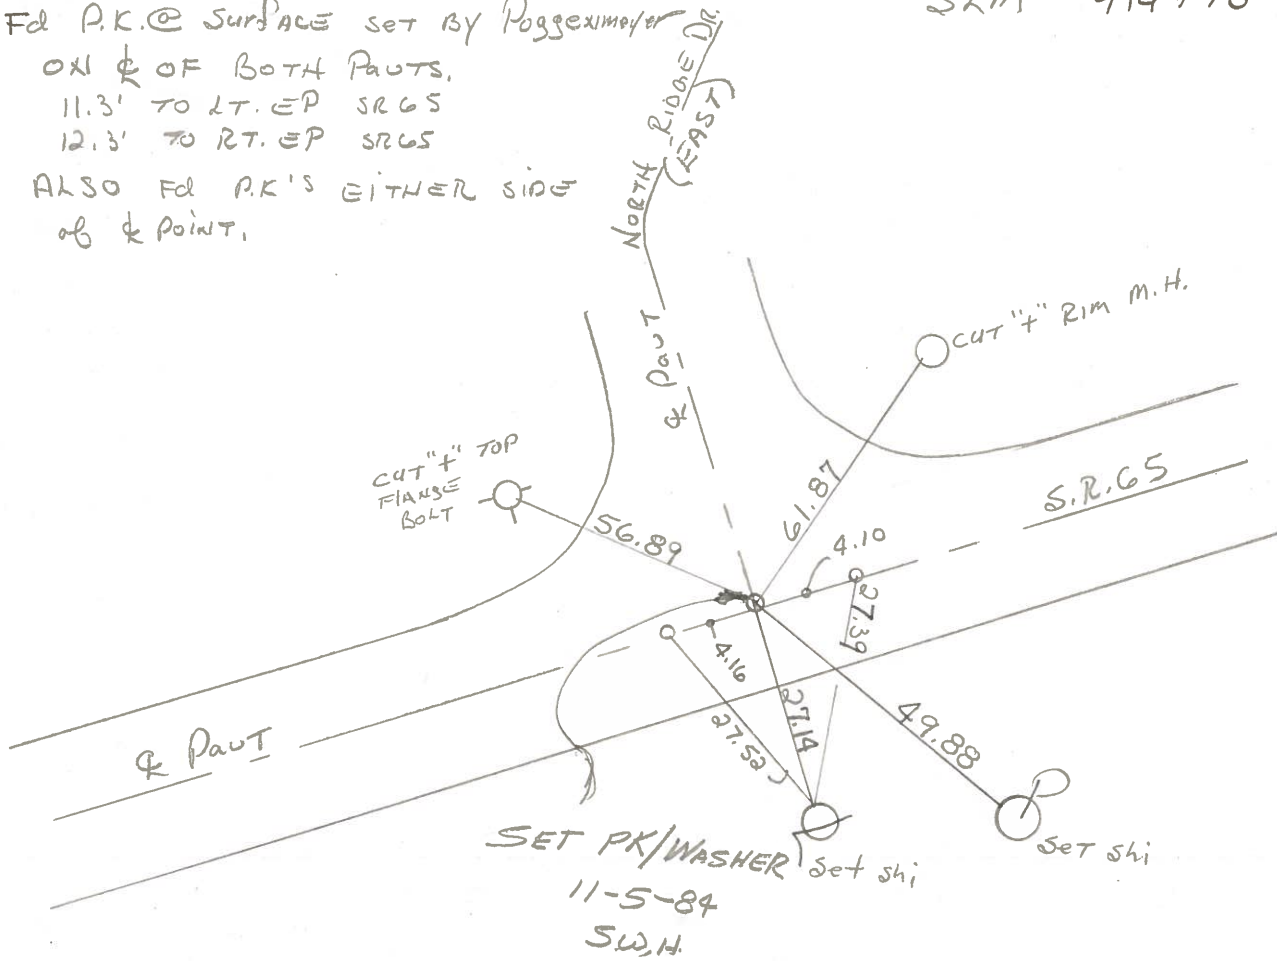 Fd P.K.@ Surface set By Poggexmeyer
ON ℄ OF BOTH PavTS.
11.3' TO LT. EP SR65
12.3' TO RT. EP SR65
ALSO Fd P.K'S EITHER SIDE
of ℄ POINT.
NORTH RIDGE DR.
(EAST)
℄ PavT
CUT "+" RIM M.H.
CUT "+" TOP
FLANGE
BOLT
56.89
61.87
4.10
S.R.65
27.39
4.16
27.52
27.14
49.88
℄ PavT
SET PK/WASHER
11-5-84
S.W.H.
Set shi
SET shi